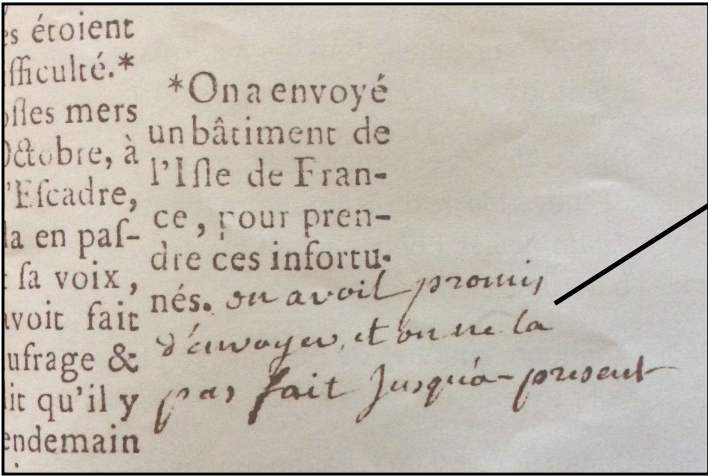 es étoient
fficulté.*
oſſes mers
Octobre, à
'Eſcadre,
la en paſ-
ſa voix,
avoit fait
ufrage &
it qu'il y
endemain
*On a envoyé
un bâtiment de
l'Iſle de Fran-
ce, pour pren-
dre ces infortu-
nés. on avoit promis
d'envoyer, et on ne la
pas fait Jusqu'a-present